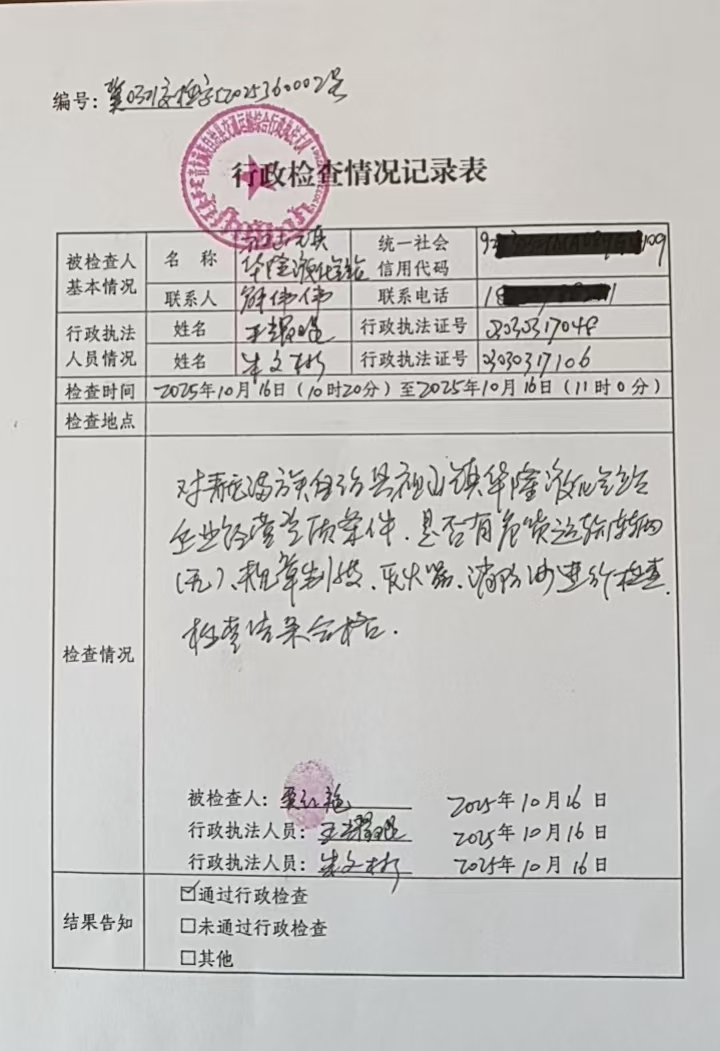 编号：
行政检查情况记录表
被检查人基本情况 名称 祖山镇华隆液化气站 统一社会信用代码
联系人 伟伟 联系电话 18
行政执法人员情况 姓名 王 行政执法证号 0303317048
姓名 朱文彬 行政执法证号 0303317106
检查时间 2025年10月16日（10时20分）至2025年10月16日（11时0分）
检查地点
检查情况
对青龙满族自治县祖山镇华隆液化气站
企业经营资质条件、是否有危货运输车辆
（无）、规章制度、灭火器、消防沙进行检查，
检查结果合格。
被检查人： 2025年10月16日
行政执法人员：王 2025年10月16日
行政执法人员：朱文彬 2025年10月16日
结果告知
☑通过行政检查
□未通过行政检查
□其他